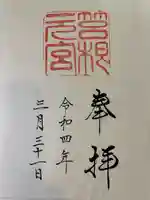 箱根
元宮
奉拝
令和四年
三月三十一日